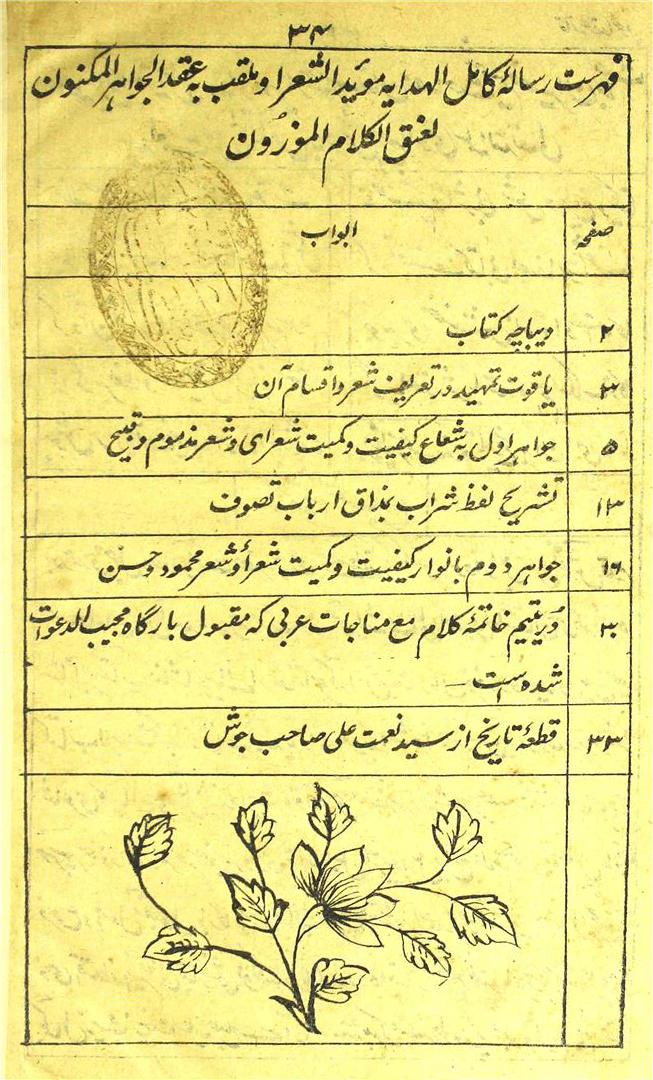 ۳۴
فہرست رسالۂ کامل الہدایہ مؤید الشعرا و ملقب بہ عقد الجواہر المکنون
لعنق الکلام الموزون
صفحہ ابواب
۲ دیباچہ کتاب
۳ یاقوت تمہید در تعریف شعر و اقسام آن
۵ جواہر اول بہ شعاع کیفیت و کمیت شعرای و شعر مذموم و قبیح
۱۳ تشریح لفظ شراب بمذاق ارباب تصوف
۱۶ جواہر دوم بانوار کیفیت و کمیت شعرأ و شعر محمود و حسن
۳۰ دُر یتیم خاتمۂ کلام مع مناجات عربی کہ مقبول بارگاہ مجیب الدعوات
شدہ است
۳۳ قطعۂ تاریخ از سید نعمت علی صاحب جوش